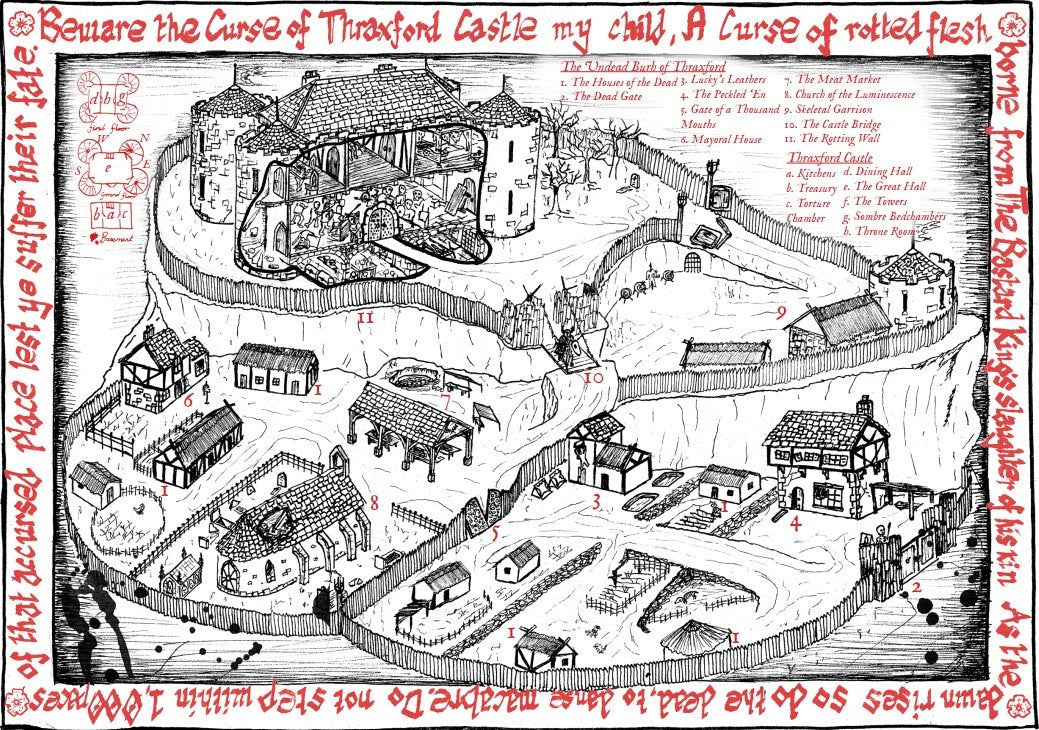 Beware the Curse of Thraxford Castle my child, A Curse of rotted flesh
borne from The Bastard King's slaughter of his kin As the
dawn rises so do the dead, to danse macabre. Do not step within 1,000 paces
of that accursed place lest ye suffer their fate.
The Undead Burh of Thraxford
1. The Houses of the Dead
2. The Dead Gate
3. Lucky's Leathers
4. The Peckled 'En
5. Gate of a Thousand
Mouths
6. Mayoral House
7. The Meat Market
8. Church of the Luminescence
9. Skeletal Garrison
10. The Castle Bridge
11. The Rotting Wall
Thraxford Castle
a. Kitchens
b. Treasury
c. Torture
Chamber
d. Dining Hall
e. The Great Hall
f. The Towers
g. Sombre Bedchambers
h. Throne Room
d h g
first floor
W N
S E
e
b a c
Basement
11
10
9
6
1
7
1
8
5
3
1
4
2
1
1